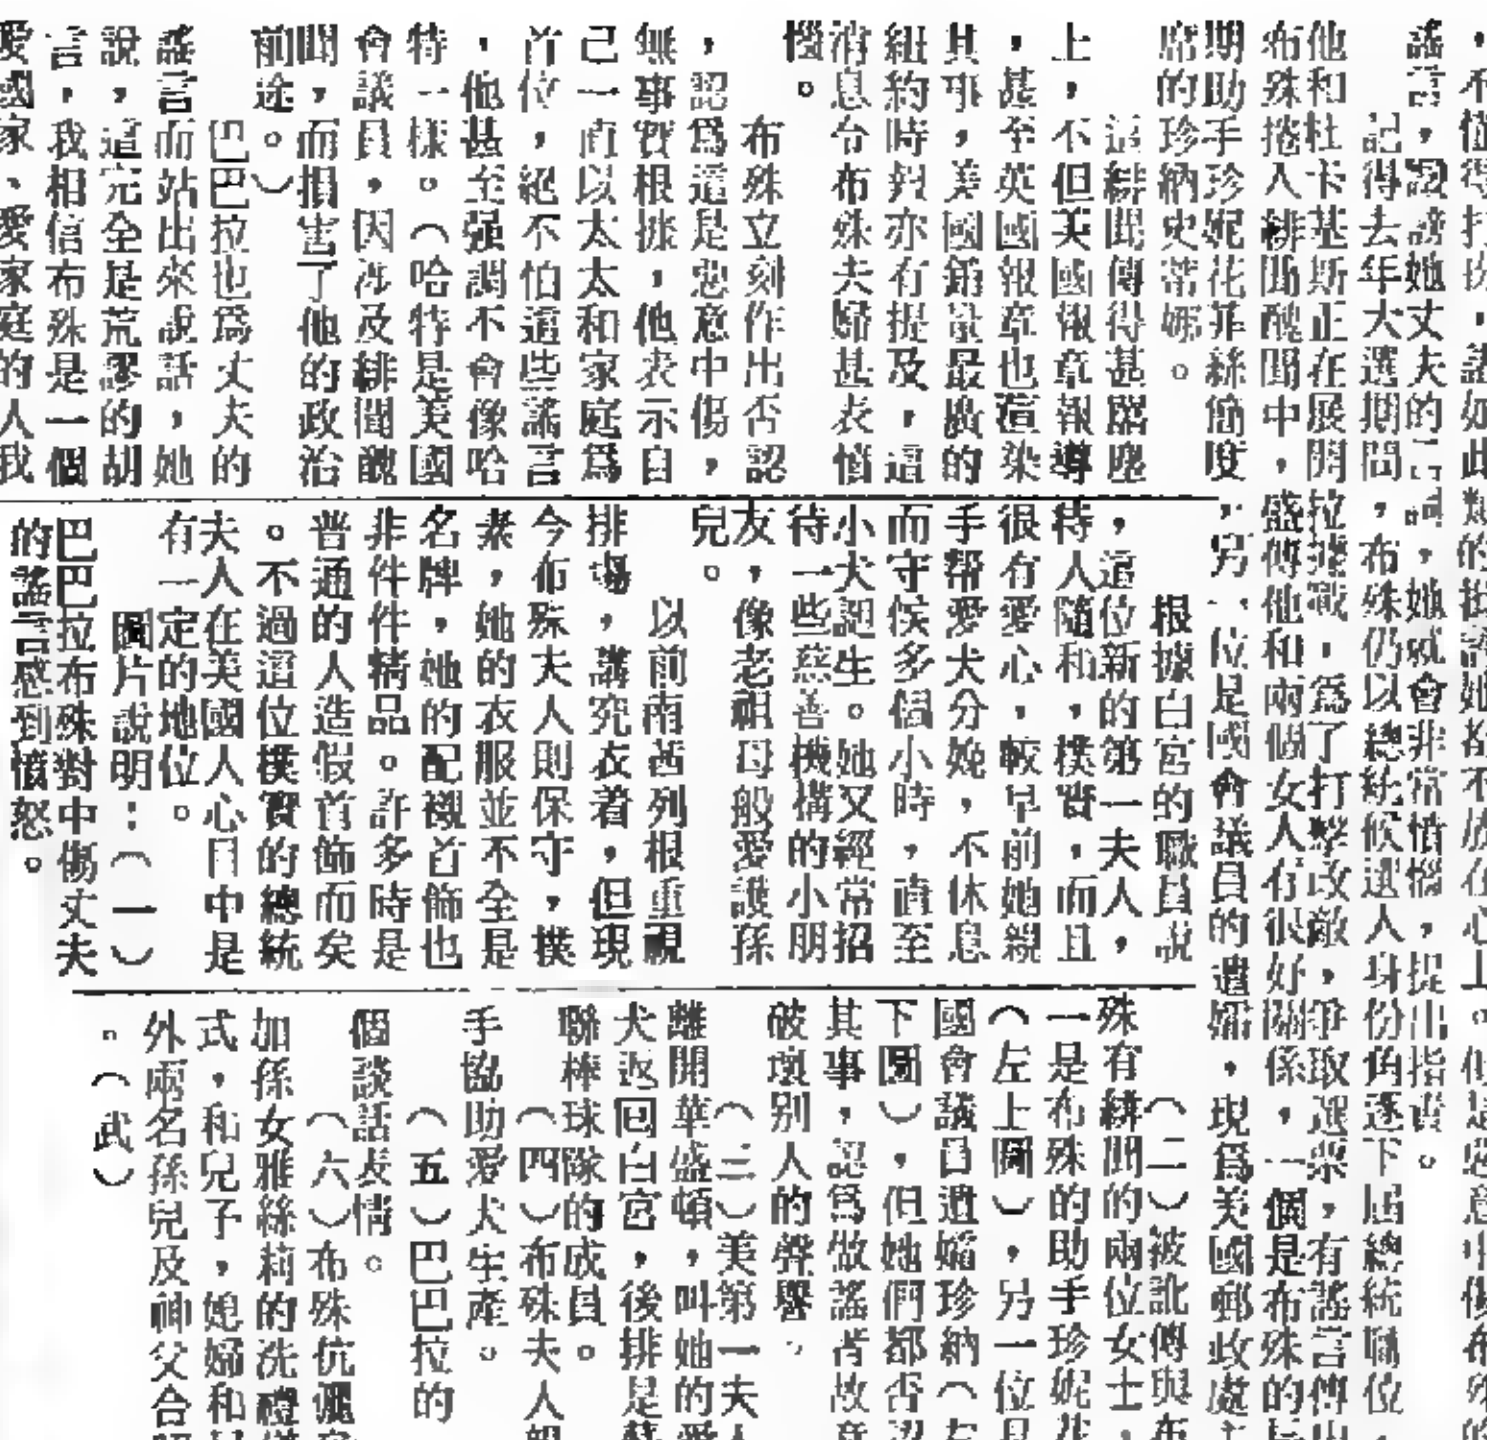 ，不值得打，諸如此類的誹謗她都不放在心上。但是惡意中傷布殊的
謠言，毀謗她丈夫的言詞，她就會非常憤惱，提出指責。
記得去年大選期間，布殊仍以總統候選人身份角逐下屆總統職位，
他和杜卡基斯正在展開拉攏戰，爲了打擊政敵，爭取選票，有謠言傳出
布殊捲入緋聞醜聞中，盛傳他和兩個女人有很好關係，一個是布殊的長
期助手珍妮花菲絲簡度，另一位是國會議員的遺孀，現爲美國郵政處主
席的珍納史蒂娜。
這緋聞傳得甚囂塵
上，不但美國報章報導
，甚至英國報章也渲染
其事，美國銷量最廣的
紐約時報亦有提及，這
消息令布殊夫婦甚表憤
惱。
布殊立刻作出否認
，認爲這是惡意中傷，
無事實根據，他表示自
己一直以太太和家庭爲
首位，絕不怕這些謠言
，他甚至强調不會像哈
特一樣。（哈特是美國
會議員，因涉及緋聞醜
聞，而損害了他的政治
前途。）
巴巴拉也爲丈夫的
謠言而站出來說話，她
說，這完全是荒謬的胡
言，我相信布殊是一個
愛國家、愛家庭的人我
根據白宮的職員說
，這位新的第一夫人，
待人隨和，樸實，而且
很有愛心，較早前她親
手帮愛犬分娩，不休息
而守侯多個小時，直至
小犬誕生。她又經常招
待一些慈善機構的小朋
友，像老祖母般愛護孫
兒。
以前南茜列根重視
排場，講究衣着，但現
今布殊夫人則保守，樸
素，她的衣服並不全是
名牌，她的配襯首飾也
非件件精品。許多時是
普通的人造假首飾而矣
。不過這位樸實的總統
夫人在美國人心目中是
有一定的地位。
圖片說明：（一）
巴巴拉布殊對中傷丈夫
的謠言感到憤怒。
（二）被訛傳與布
殊有緋聞的兩位女士，
一是布殊的助手珍妮花
（左上圖），另一位是
國會議員遺孀珍納（右
下圖），但她們都否認
其事，認爲做謠者故意
破壞別人的聲譽。
（三）美第一夫人
離開華盛頓，叫她的愛
犬返回白宮，後排是蘇
聯棒球隊的成員。
（四）布殊夫人親
手協助愛犬生產。
（五）巴巴拉的
個談話表情。
（六）布殊伉儷
加孫女雅絲莉的洗禮
式，和兒子，媳婦和
外兩名孫兒及神父合
。（武）